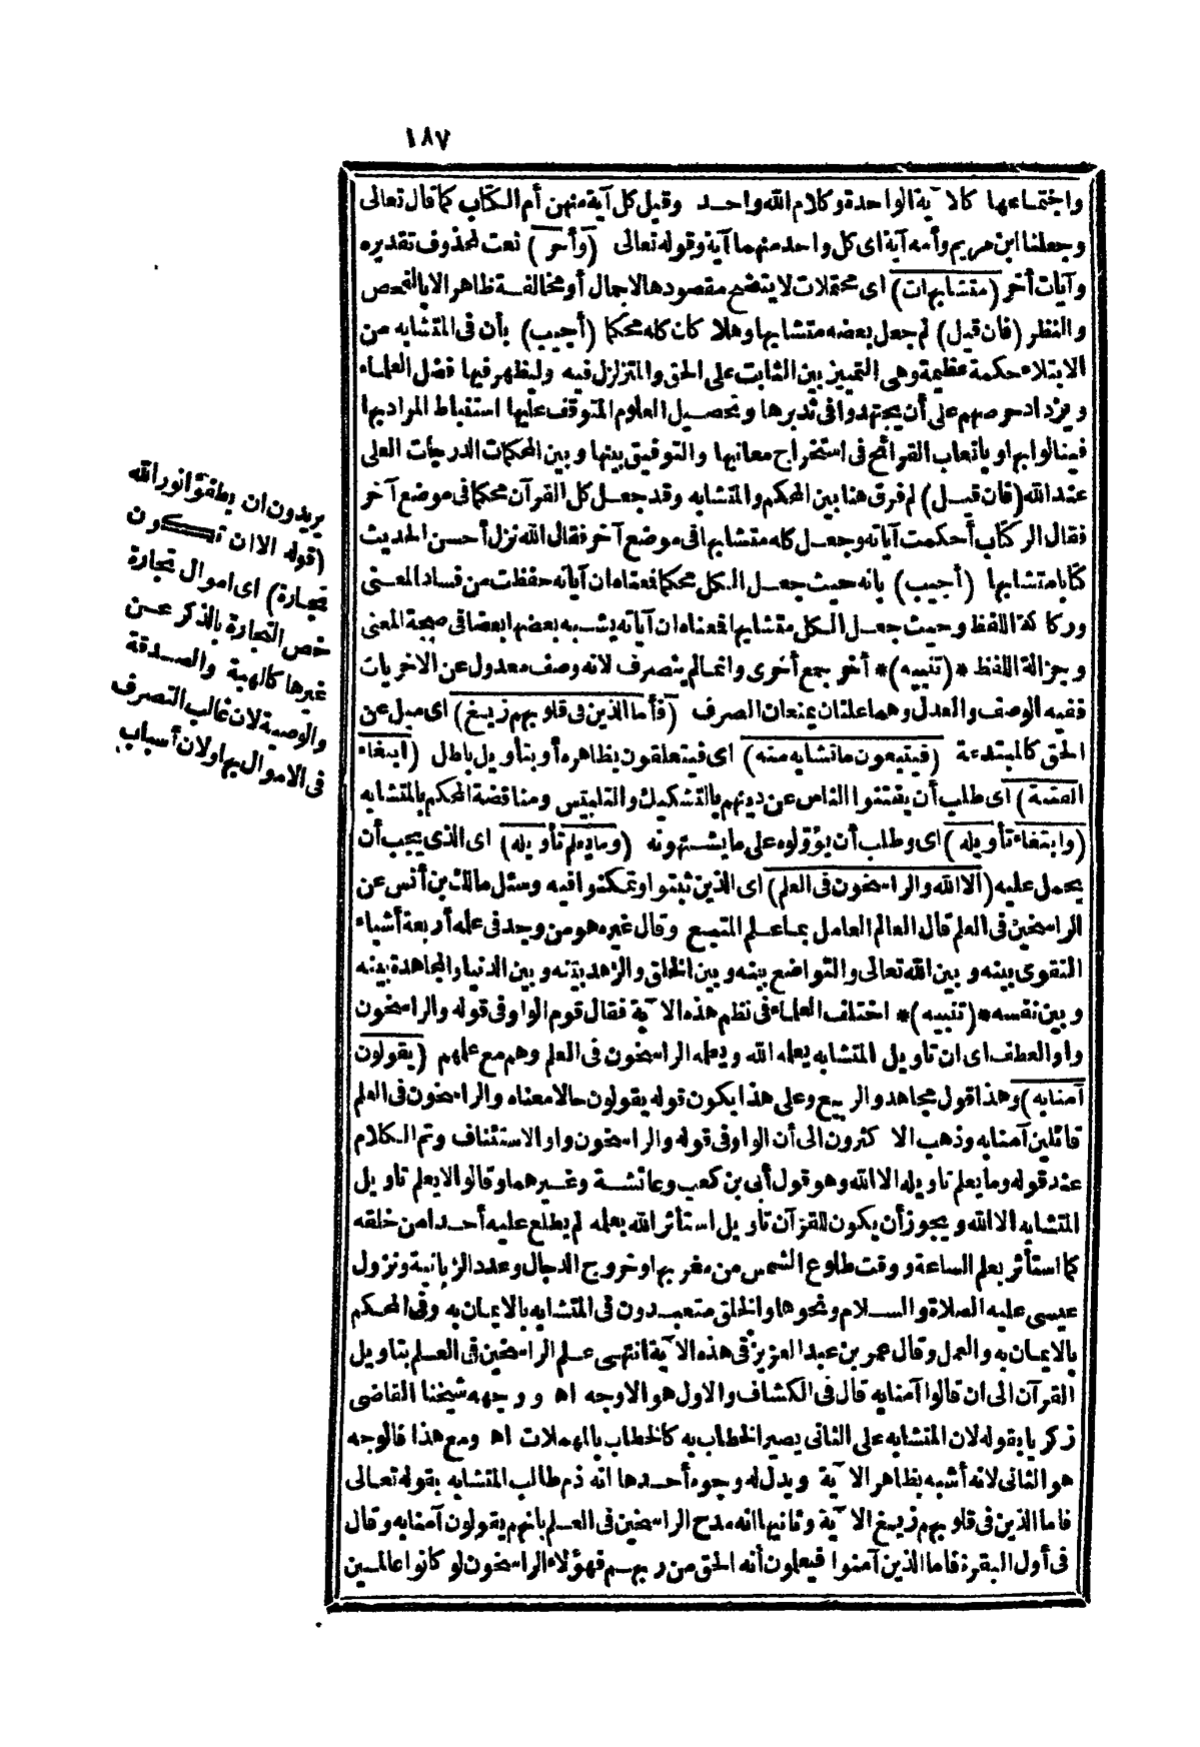 ١٨٧
واجتماعها كالآية الواحدة وكلام الله واحد وقيل كل آية منهن أم الكتاب كما قال تعالى
وجعلنا ابن مريم وأمه آية اى كل واحد منهما آية وقوله تعالى (وأخر) نعت لمحذوف تقديره
وآيات أخر (متشابهات) اى محتملات لا يتضح مقصودها لاجمال أو مخالفة ظاهر الا بالفحص
والنظر (فان قيل) لم جعل بعضه متشابها وهلا كان كله محكما (أجيب) بأن فى المتشابه من
الابتلاء حكمة عظيمة وهى التمييز بين الثابت على الحق والمتزلزل فيه وليظهر فيها فضل العلماء
ويزداد حرصهم على أن يجتهدوا فى تدبرها وتحصيل العلوم المتوقف عليها استنباط المراد بها
فينالوا بها وباتعاب القرائح فى استخراج معانيها والتوفيق بينها وبين المحكمات الدرجات العلى
عند الله (فان قيل) لم فرق هنا بين المحكم والمتشابه وقد جعل كل القرآن محكما فى موضع آخر
فقال الر كتاب أحكمت آياته وجعل كله متشابها فى موضع آخر فقال الله نزل أحسن الحديث
كتابا متشابها (أجيب) بانه حيث جعل الكل محكما فمعناه ان آياته حفظت من فساد المعنى
وركاكة اللفظ وحيث جعل الكل متشابها فمعناه ان آياته يشبه بعضها بعضا فى صحة المعنى
وجزالة اللفظ *(تنبيه)* أخر جمع أخرى وانما لم ينصرف لانه وصف معدول عن الاخريات
ففيه الوصف والعدل وهما علتان يمنعان الصرف (فأما الذين فى قلوبهم زيغ) اى ميل عن
الحق كالمبتدعة (فيتبعون ما تشابه منه) اى فيتعلقون بظاهره أو بتأويل باطل (ابتغاء
الفتنة) اى طلب أن يفتنوا الناس عن دينهم بالتشكيك والتلبيس ومناقضة المحكم بالمتشابه
(وابتغاء تأويله) اى وطلب أن يؤولوه على ما يشتهونه (وما يعلم تأويله) اى الذى يجب أن
يحمل عليه (الا الله والراسخون فى العلم) اى الذين ثبتوا وتمكنوا فيه وسئل مالك بن أنس عن
الراسخين فى العلم قال العالم العامل بما علم المتبع وقال غيره هو من وجد فى علمه أربعة أشياء
التقوى بينه وبين الله تعالى والتواضع بينه وبين الخلق والزهد بينه وبين الدنيا والمجاهدة بينه
وبين نفسه *(تنبيه)* اختلف العلماء فى نظم هذه الآية فقال قوم الواو فى قوله والراسخون
واو العطف اى ان تاويل المتشابه يعلمه الله ويعلمه الراسخون فى العلم وهم مع علمهم (يقولون
آمنا به) وهذا قول مجاهد والربيع وعلى هذا يكون قوله يقولون حالا معناه والراسخون فى العلم
قائلين آمنا به وذهب الاكثرون الى أن الواو فى قوله والراسخون واو الاستئناف وتم الكلام
عند قوله وما يعلم تاويله الا الله وهو قول أبى بن كعب وعائشة وغيرهما وقالوا لا يعلم تاويل
المتشابه الا الله ويجوز أن يكون للقرآن تأويل استأثر الله بعلمه لم يطلع عليه أحدا من خلقه
كما استأثر بعلم الساعة ووقت طلوع الشمس من مغربها وخروج الدجال وعدد الزبانية ونزول
عيسى عليه الصلاة والسلام ونحوها والخلق متعبدون فى المتشابه بالايمان به وفى المحكم
بالايمان به والعمل وقال عمر بن عبد العزيز فى هذه الآية انتهى علم الراسخين فى العلم بتاويل
القرآن الى ان قالوا آمنا به قال فى الكشاف والاول هو الاوجه اه ووجهه شيخنا القاضى
زكريا بقوله لان المتشابه على الثانى يصير الخطاب به كالخطاب بالمهملات اه ومع هذا فالوجه
هو الثانى لانه أشبه بظاهر الآية ويدل له وجوه أحدها انه ذم طالب المتشابه بقوله تعالى
فاما الذين فى قلوبهم زيغ الآية وثانيها انه مدح الراسخين فى العلم بانهم يقولون آمنا به وقال
فى أول البقرة فاما الذين آمنوا فيعلمون أنه الحق من ربهم فهؤلاء الراسخون لو كانوا عالمين
يريدون ان يطفؤا نور الله
(قوله الا ان تكون
تجارة) اى اموال تجارة
خص التجارة بالذكر عن
غيرها كالهبة والصدقة
والوصية لان غالب التصرف
فى الاموال بها ولان أسباب